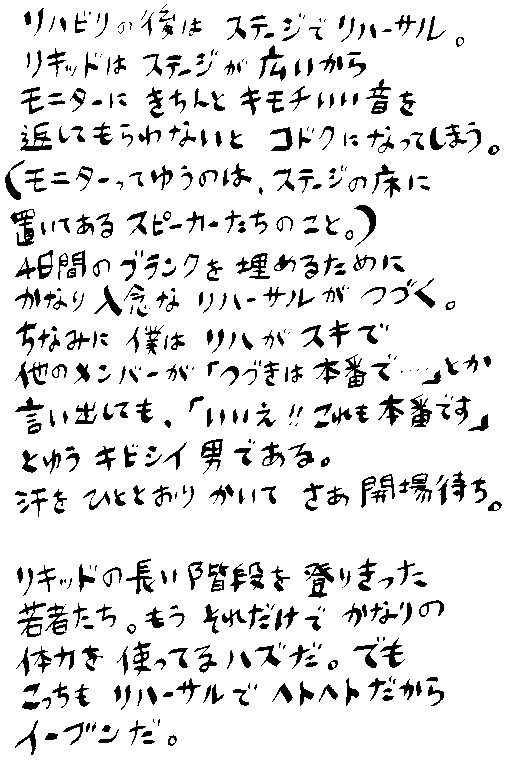 リハビリの後は ステージで リハーサル。
リキッドは ステージが 広いから
モニターに きちんと キモチいい 音を
返してもらわないと コドクになってしまう。
(モニターってゆうのは、ステージの床に
置いてある スピーカーたちのこと。)
4日間の ブランクを 埋めるために
かなり 入念な リハーサルが つづく。
ちなみに 僕は リハが スキで
他のメンバーが「つづきは 本番で……」とか
言い出しても、「いいえ!! これも 本番です」
とゆう キビシイ 男である。
汗を ひととおり かいて さあ 開場待ち。

リキッドの 長い 階段を 登りきった
若者たち。もう それだけで かなりの
体力を 使ってるハズだ。でも
こっちも リハーサルで ヘトヘトだから
イーブンだ。